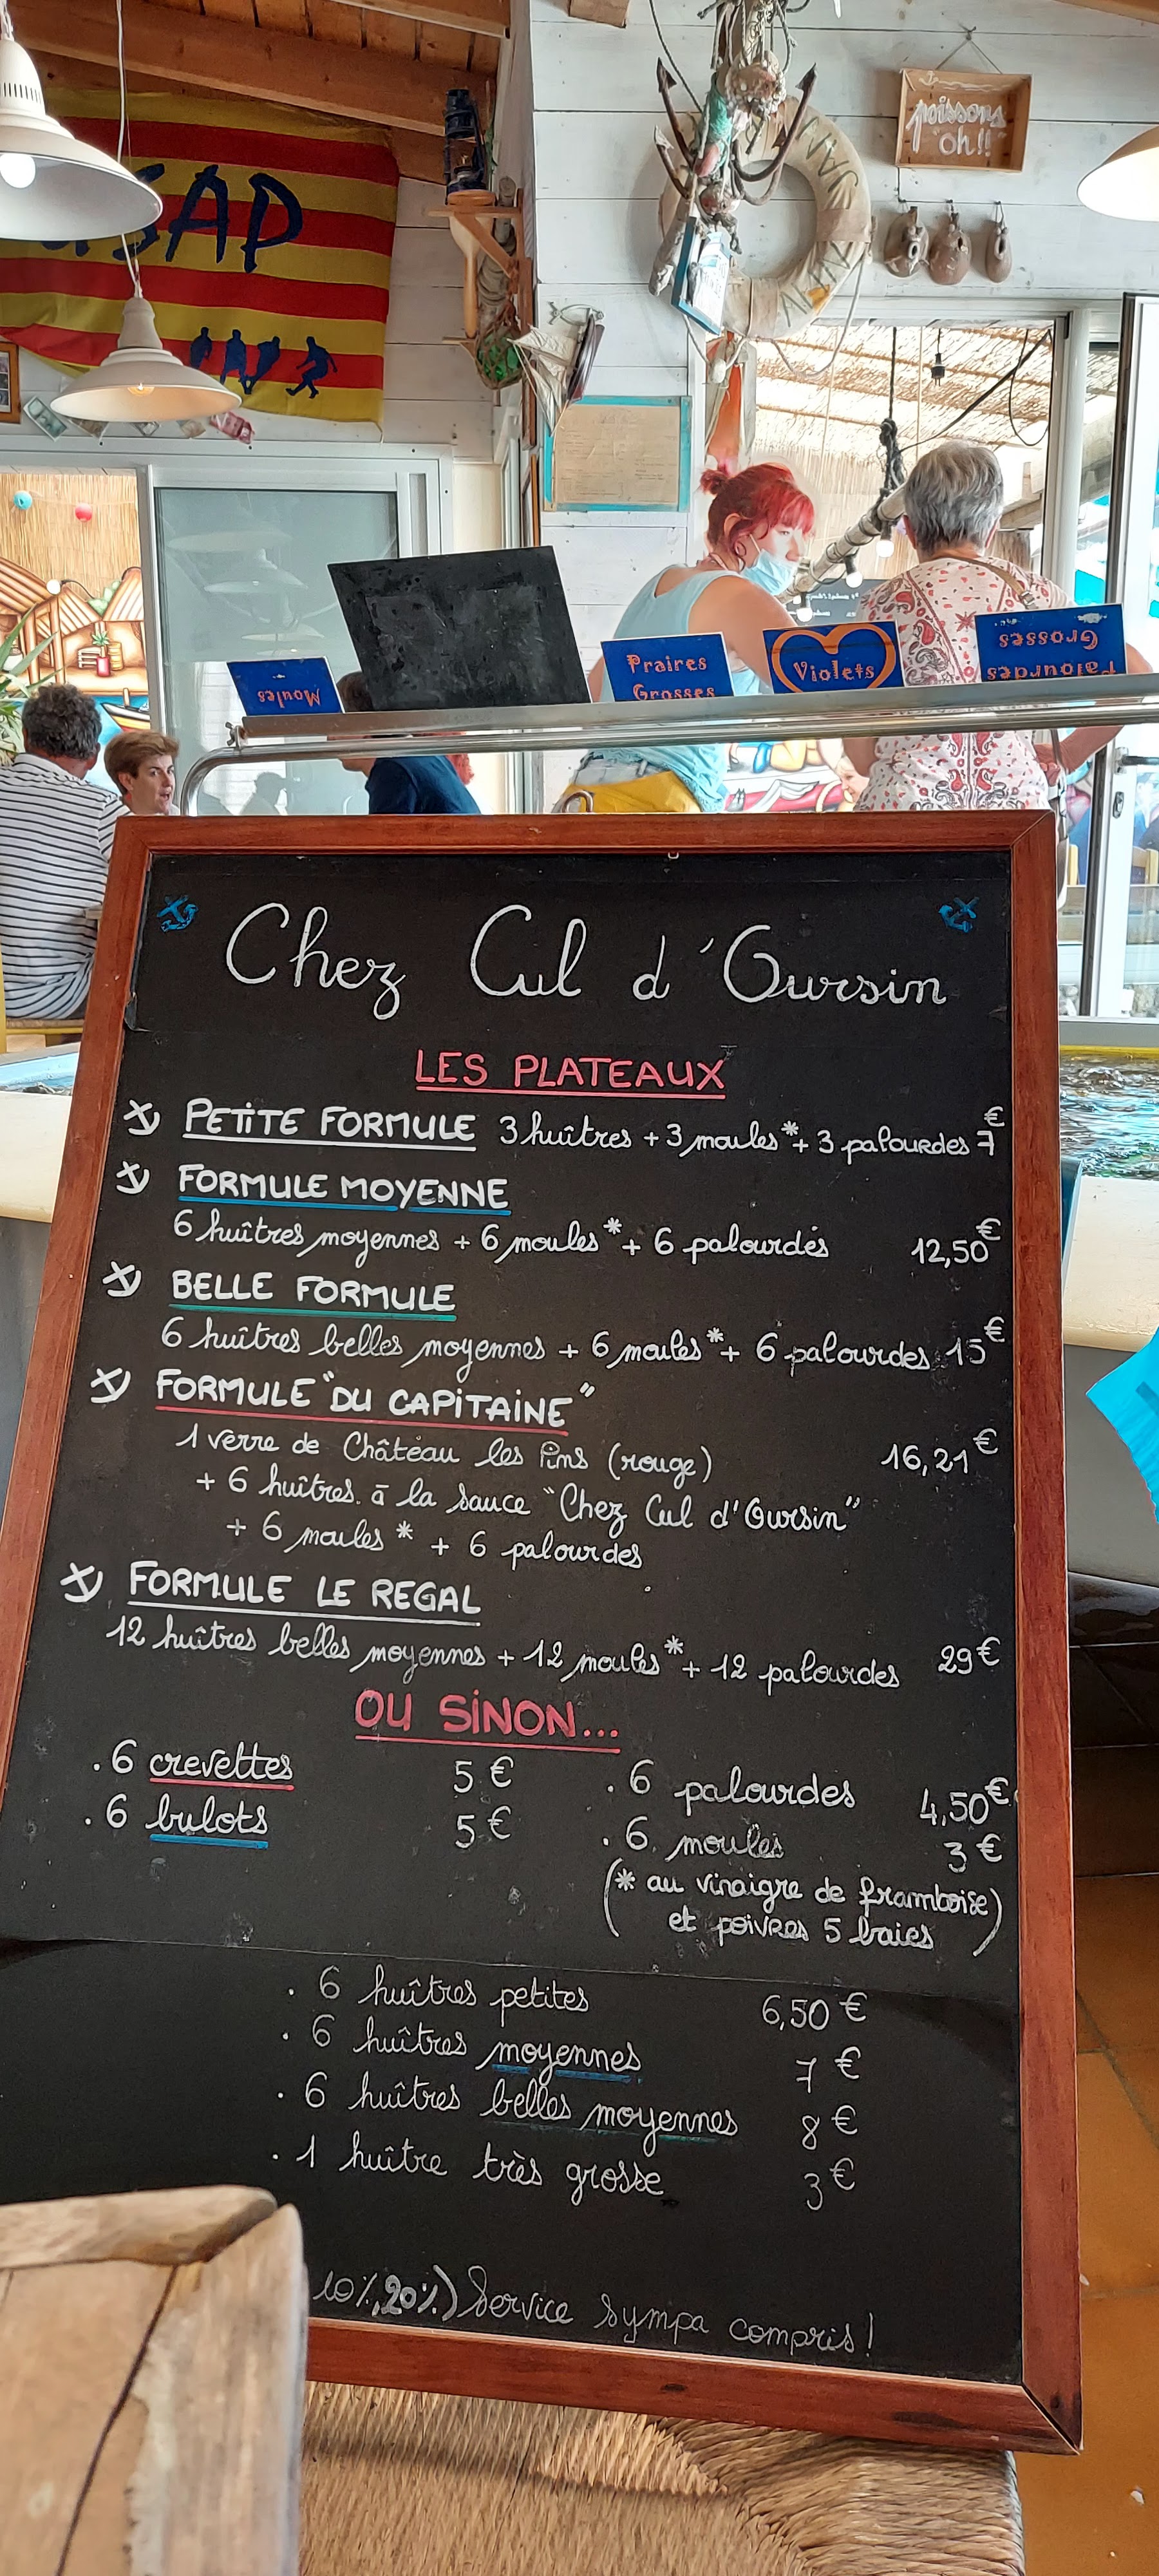 USAP
poissons
"oh!!
Moules
Praires
Grosses
Violets
Palourdes
Grosses
Chez Cul d'Oursin
LES PLATEAUX
PETITE FORMULE 3 huîtres + 3 moules* + 3 palourdes 7€
FORMULE MOYENNE
6 huîtres moyennes + 6 moules* + 6 palourdes 12,50€
BELLE FORMULE
6 huîtres belles moyennes + 6 moules* + 6 palourdes 15€
FORMULE "DU CAPITAINE"
1 verre de Château les Pins (rouge) 16,21€
+ 6 huîtres à la sauce "Chez Cul d'Oursin"
+ 6 moules* + 6 palourdes
FORMULE LE REGAL
12 huîtres belles moyennes + 12 moules* + 12 palourdes 29€
OU SINON...
. 6 crevettes 5 €
. 6 bulots 5 €
. 6 palourdes 4,50€
. 6 moules 3 €
(* au vinaigre de framboise)
et poivres 5 baies
. 6 huîtres petites 6,50 €
. 6 huîtres moyennes 7 €
. 6 huîtres belles moyennes 8 €
. 1 huître très grosse 3 €
10%, 20%) Service sympa compris!